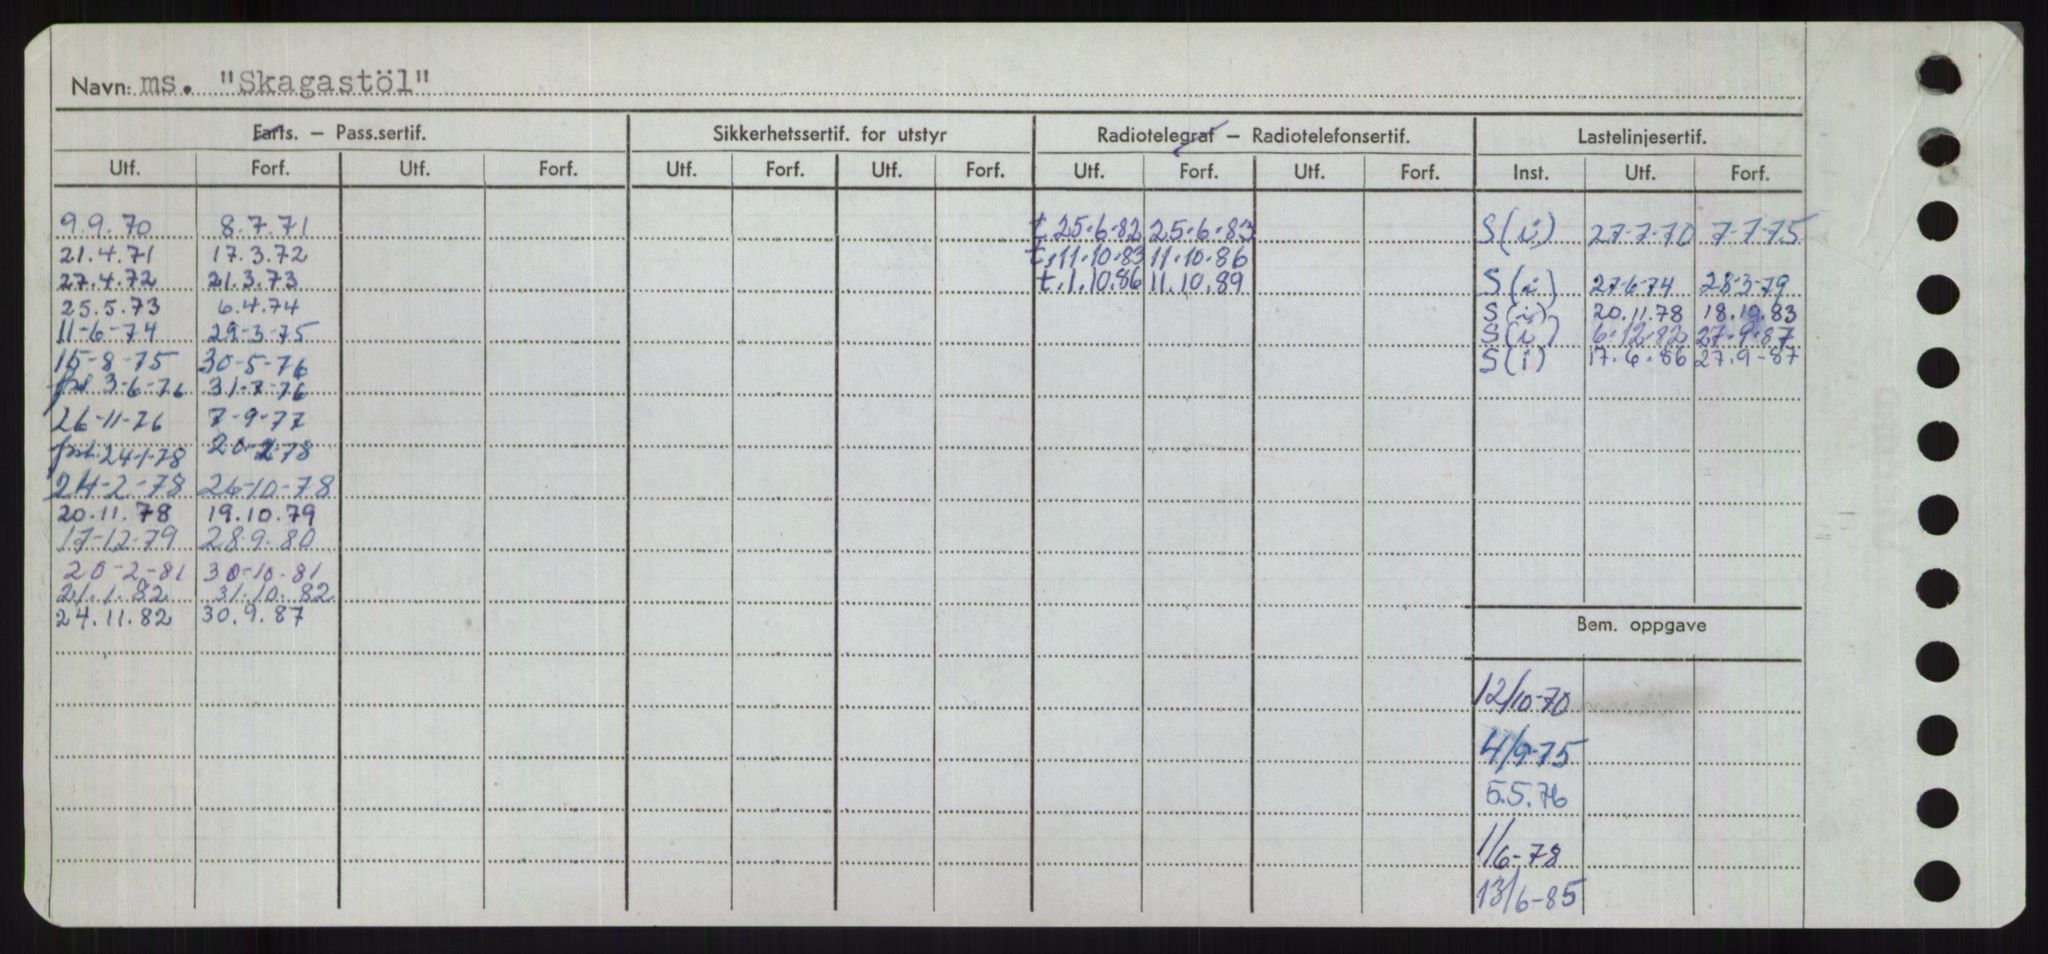 Navn: ms. "Skagastöl"
Farts. – Pass.sertif. Sikkerhetssertif. for utstyr Radiotelegraf – Radiotelefonsertif. Lastelinjesertif.
Utf. Forf. Utf. Forf. Utf. Forf. Utf. Forf. Utf. Forf. Utf. Forf. Inst. Utf. Forf.
9.9.70 8.7.71 t 25-6-82 25-6-83 S(i) 27-7-70 7-7-75
21.4.71 17.3.72 t. 11-10-83 11-10-86
27.4.72 21.3.73 t. 1.10.86 11.10.89 S(i) 27-6-74 28-3-79
25.5.73 6.4.74 S(i) 20.11.78 18.10.83
11-6-74 29-3-75 S(i) 6-12-82 27-9-87
15-8-75 30-5-76 S(i) 17.6.86 27.9-87
frl. 3-6-76 31-7-76
26-11-76 7-9-77
frl. 24-1-78 20-2-78
24-2-78 26-10-78
20.11.78 19.10.79
17-12-79 28.9.80
20-2-81 30-10-81
21.1.82 31.10.82
24.11.82 30.9.87
Bem. oppgave
12/10-70
4/9-75
5.5.76
1/6-78
13/6-85